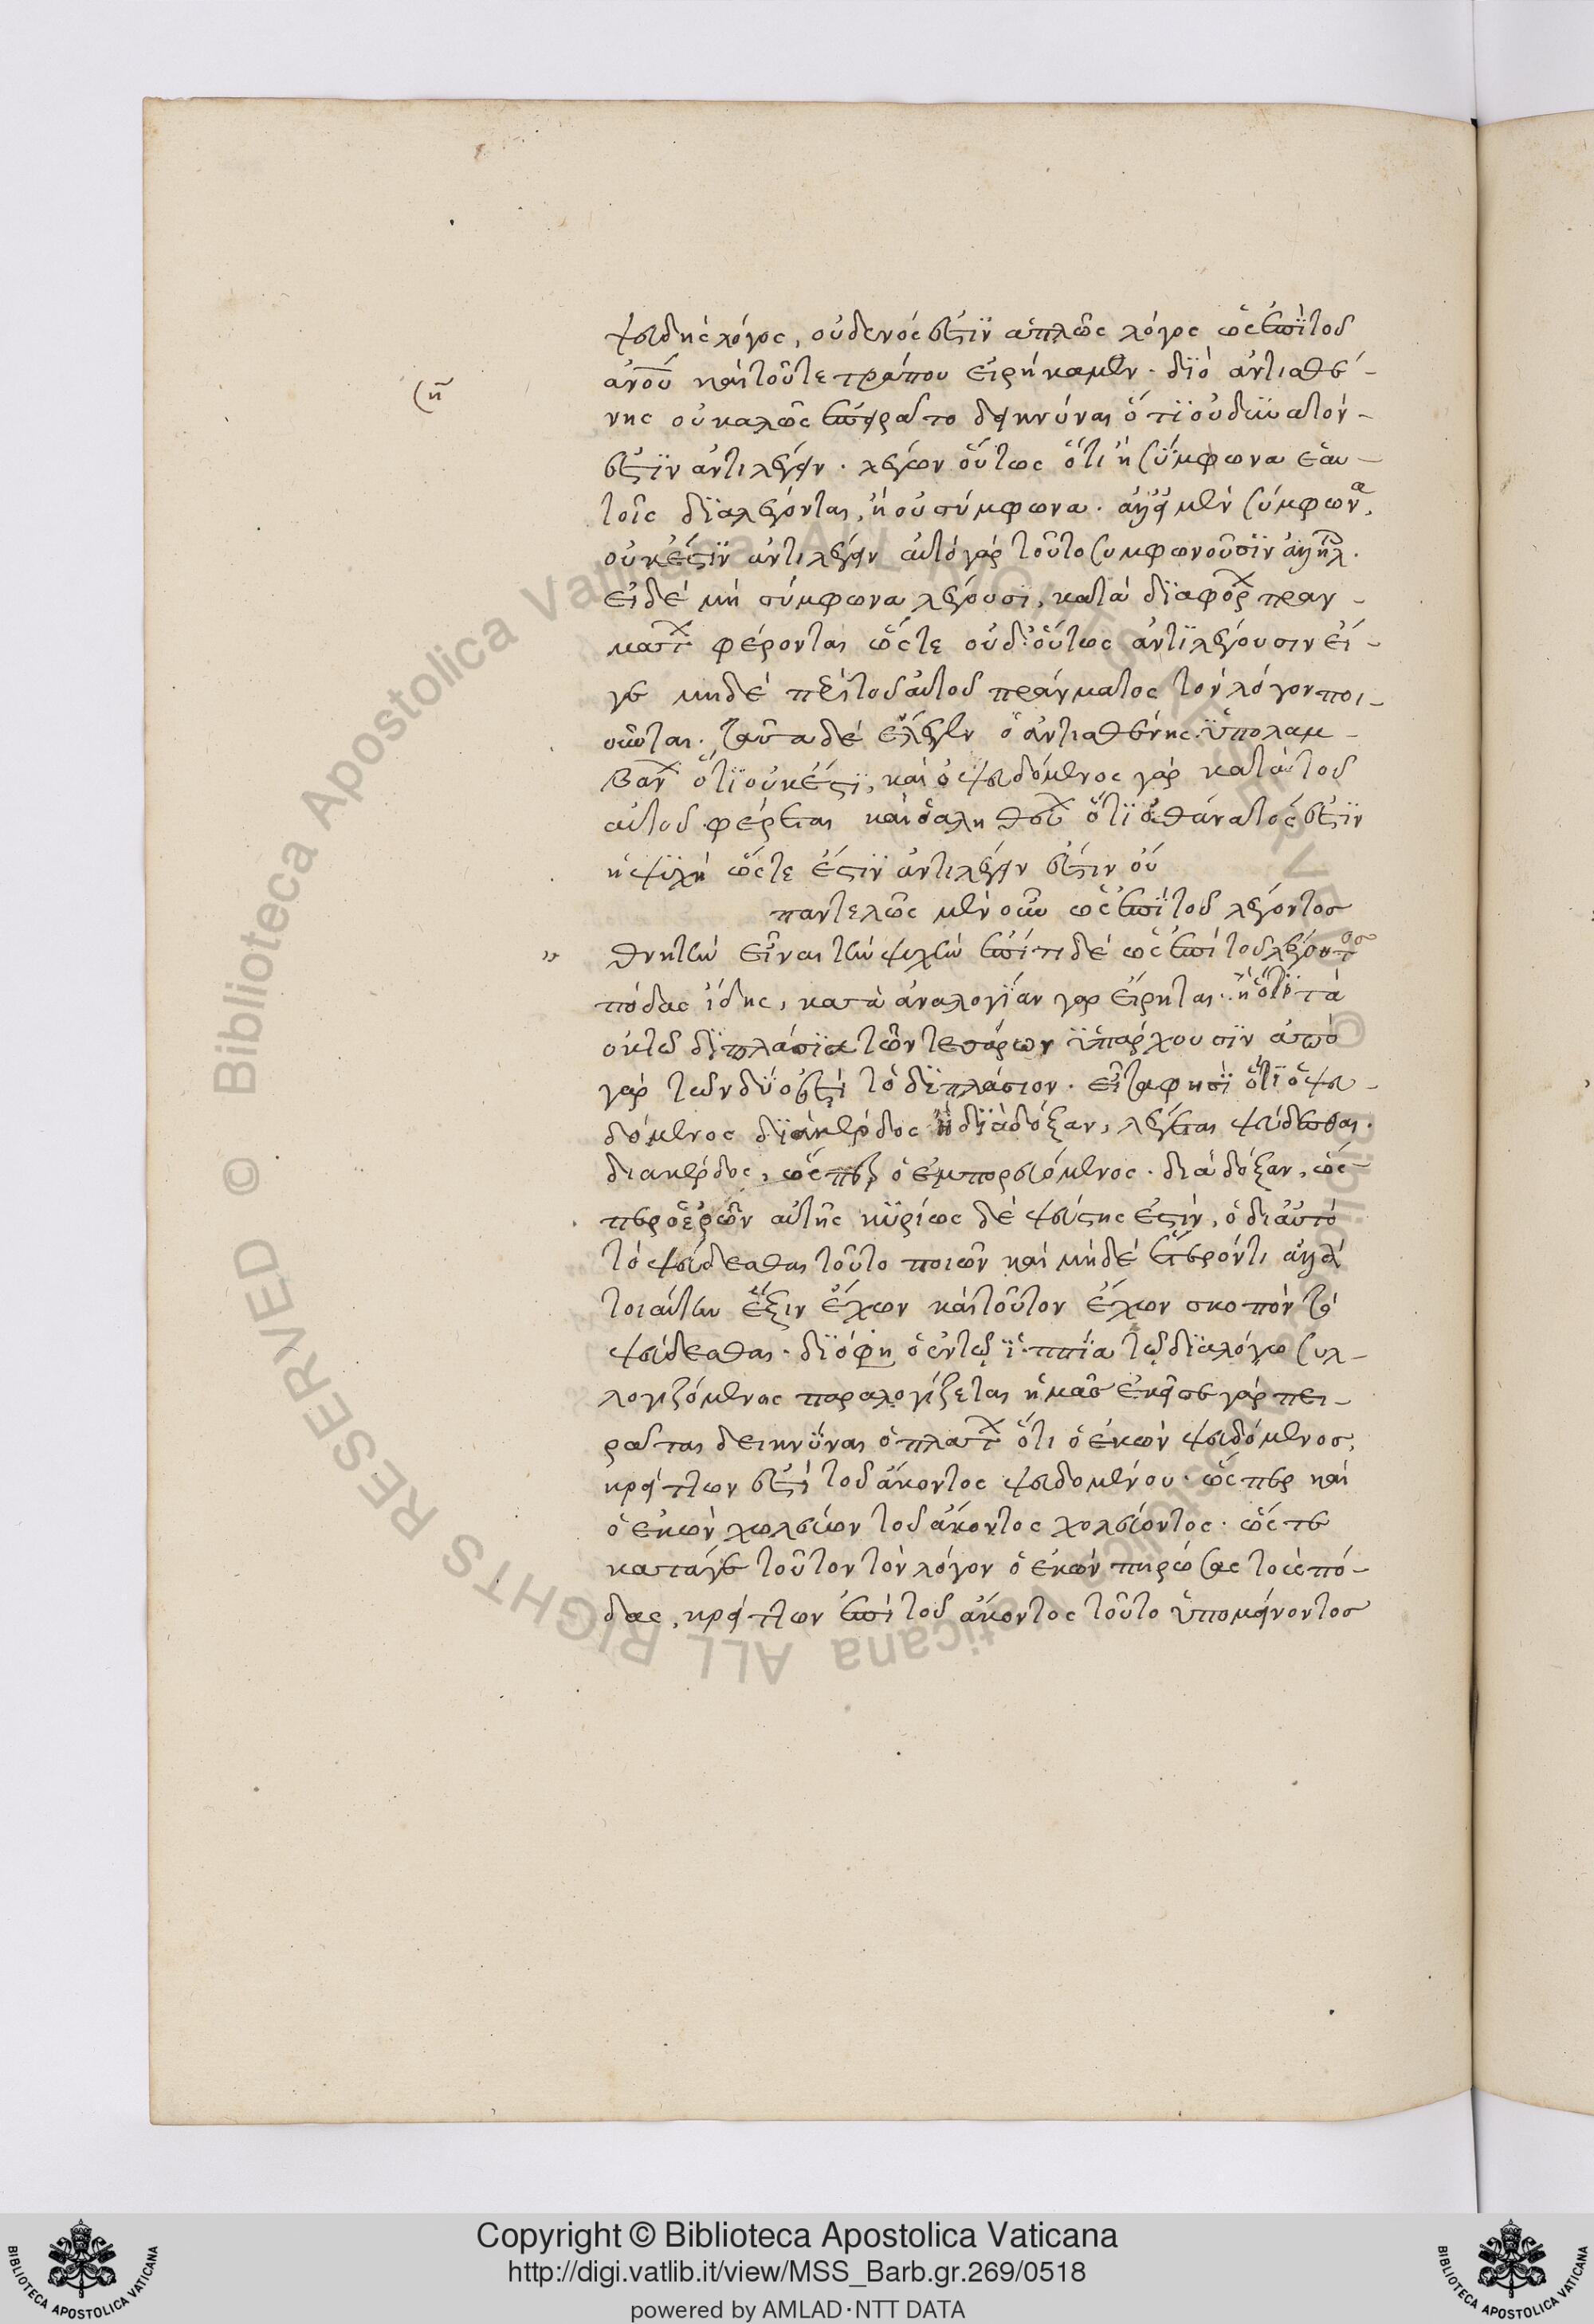 ψευδὴς λόγος, οὐδενός ἐστϊν ἁπλῶς λόγος ὡς ἐπῒ τοῦ
ἀνοῦ καὶ τοῦτε τρόπου εἰρήκαμεν. δϊὸ ἀντισθέ-
νης οὐ καλῶς ἐπειρᾶτο δεικνύναι ὅτϊ οὐ δυνατόν-
ἐστϊν ἀντιλέγειν. λέγων οὕτως ὅτι ἢ σύμφωνα ἑαυ-
τοῖς δϊαλέγονται, ἢ οὐ σύμφωνα. ἀλλ' εἰ μὲν σύμφωνα,
οὐκ ἔστϊν ἀντιλέγειν αὐτὸ γὰρ τοῦτο συμφωνοῦσϊν ἀλλήλ.
εἰ δὲ μὴ σύμφωνα λέγουσϊ, κατὰ δϊαφόρ πραγ-
ματ φέρονται ὥστε οὐδ' οὕτως ἀντϊλέγουσιν εἴ-
γε μηδὲ περὶ τοῦ αὐτοῦ πράγματος τὸν λόγον ποι-
οῦνται. ταῦτα δὲ ἔλεγεν ὁ ἀντισθένης. ὑπολαμ-
βαν ὅτϊ οὐκ ἔστϊ, καὶ ὁ ψευδόμενος γὰρ κατὰ τοῦ
αὐτοῦ φέρεται καὶ ὁ ἀληθευ ὅτϊ ἀθάνατός ἐστϊν
ἡ ψϋχὴ ὥστε ἔστϊν ἀντιλέγειν ἐστιν οὐ
παντελῶς μὲν οὖν ὡς ἐπῒ τοῦ λέγοντος
" θνητὴν εἶναι τὴν ψυχὴν ἐπί τι δὲ ὡς ἐπὶ τοῦ λέγοντος
πόδας ἴδης, κατὰ ἀναλογϊαν γαρ εἴρηται. ἢ ὅτϊ τὰ
ὀκτὼ δϊπλάσϊα τῶν τεσάρων ὑπάρχουσϊν ἀπὸ
γὰρ τῶν δύο ἐστὶ τὸ δϊπλάσιον. εἶτα φησῒ ὅτϊ ὁ ψευ-
δόμενος δϊὰ κέρδος ἢ δϊὰ δόξαν, λέγεται ψεύδεσθαι.
δια κέρδος, ὥσπερ ὁ ἐμπορευόμενος. διὰ δόξαν, ὥς-
περ ὁ ἐρῶν αὐτῆς κϋρίως δὲ ψεύστης ἐστὶν, ὁ δι αὐτὸ
τὸ ψεύδεσθαι τοῦτο ποιῶν καὶ μὴ δὲ ἕτερόν τι ἀλλὰ
τοιαύτην ἕξιν ἔχων καὶ τοῦτον ἔχων σκοπὸν τὸ
ψεύδεσθαι. δϊό φη ὁ ἐν τῶ ϊππία τῶ δϊαλόγω συλ-
λογιζόμενος παραλογίζεται ἡμᾶς ἐκεῖσε γὰρ πει-
ρᾶται δεικνῦναι ὁ πλατ ὅτι ὁ ἑκὼν ψευδόμενος,
κρείττων ἐστὶ τοῦ ἄκοντος ψευδομένου. ὥσπερ καὶ
ὁ ἑκὼν χωλεύων τοῦ ἄκοντος χολεύοντος. ὥστε
κατάγε τοῦτον τὸν λόγον ὁ ἑκὼν πηρώσας τοὺς πό-
δας, κρείττων ἐπὶ τοῦ ἄκοντος τοῦτο ὑπομείνοντος
Copyright © Biblioteca Apostolica Vaticana
http://digi.vatlib.it/view/MSS_Barb.gr.269/0518
powered by AMLAD·NTT DATA